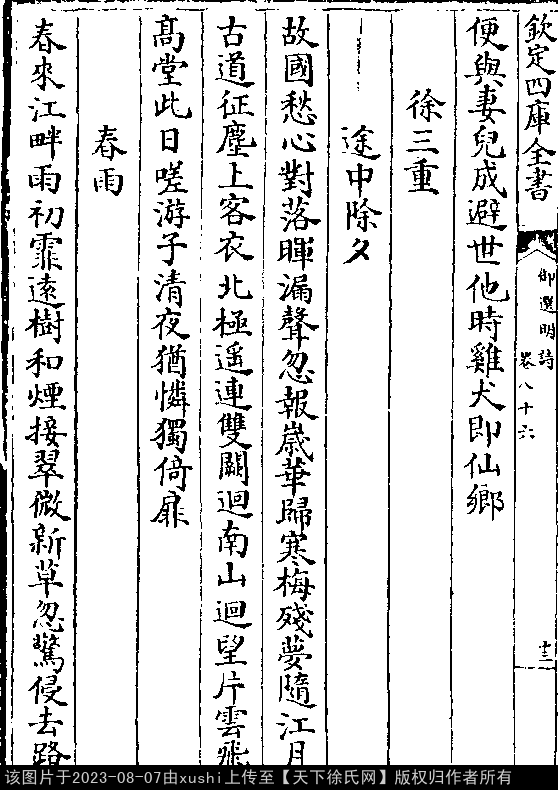 欽定四庫全書
御選明詩
卷八十六
十二
便與妻兒成避世他時雞犬即仙鄉
徐三重
途中除夕
故國愁心對落暉漏聲忽報歲華歸寒梅殘夢隨江月
古道征塵上客衣北極遥連雙闕迴南山迴望片雲飛
髙堂此日嗟游子清夜猶憐獨倚扉
春雨
春來江畔雨初霏遠樹和煙接翠微新草忽驚侵去路
该图片于2023-08-07由xushi上传至【天下徐氏网】版权归作者所有